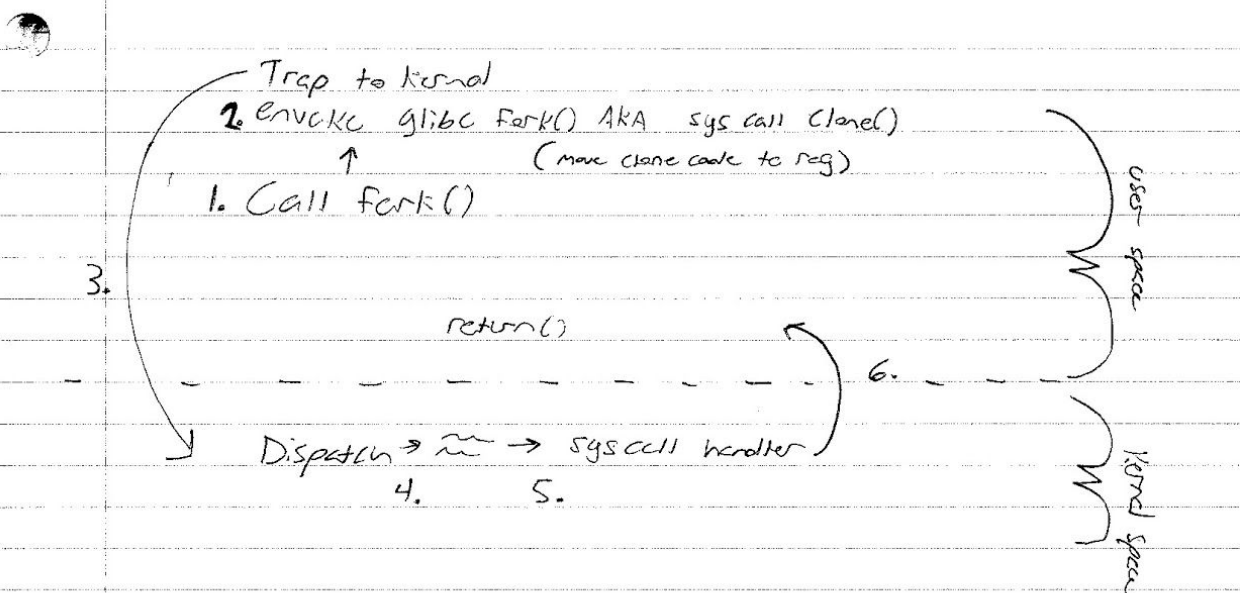 Trap to kernal
2. envoke glibc fork() AKA sys call clone()
(move clone code to reg)
1. Call fork()
user space
3.
return()
6.
Dispatch → → syscall handler
4. 5.
Kernal space